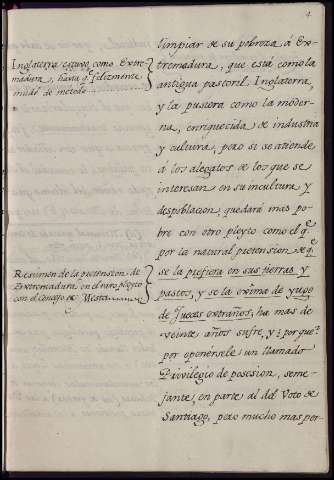 4
limpiar de su pobreza á Ex-
tremadura, que está como la
antigua pastoril Inglaterra,
y la pusiera como la moder-
na, enriquecida de industria
y cultura, pero si se atiende
á los alegatos de los que se
interesan en su incultura y
despoblacion, quedará mas po-
bre con otro pleyto como el qe.
por la natural pretension de qe.
se la prefiera en sus tierras y
pastos, y se la exima de yugo
de Jueces extraños, ha mas de
veinte años sufre, y ¿por que?
por oponersele un llamado
Privilegio de posesion, seme-
jante, en parte al del Voto de
Santiago, pero mucho mas per-
Inglaterra estuvo como Extre-
madura, hasta qe. felizmente
mudó de metodo
Resumen de la pretension de
Extremadura en el raro pleyto
con el Concejo de Mesta